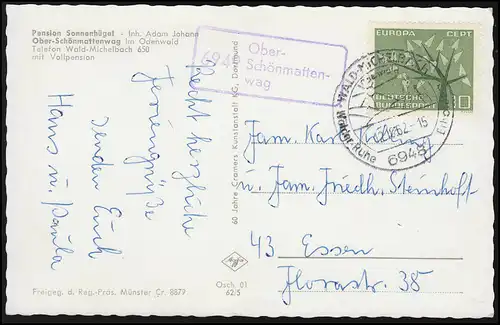 Pension Sonnerhügel - Inh. Adam Johann
Ober-Schönmattenwag im Odenwald
Telefon Wald-Michelbach 650
mit Vollpension
Recht herzliche
Feriengrüße
senden Euch
Hans u. Paula
60 Jahre Cramers Kunstanstalt KG. Dortmund
Freigeg. d. Reg.-Präs. Münster Cr. 8879
Qsch 01
62/5
694
Ober-
Schönmatten-
wag
EUROPA CEPT
DEUTSCHE
BUNDESPOST
10
WALD-MICHELBACH
-15
6948
Fam. Karl
u. Fam. Friedh. Steinhoff
43 Essen
Florastr. 38